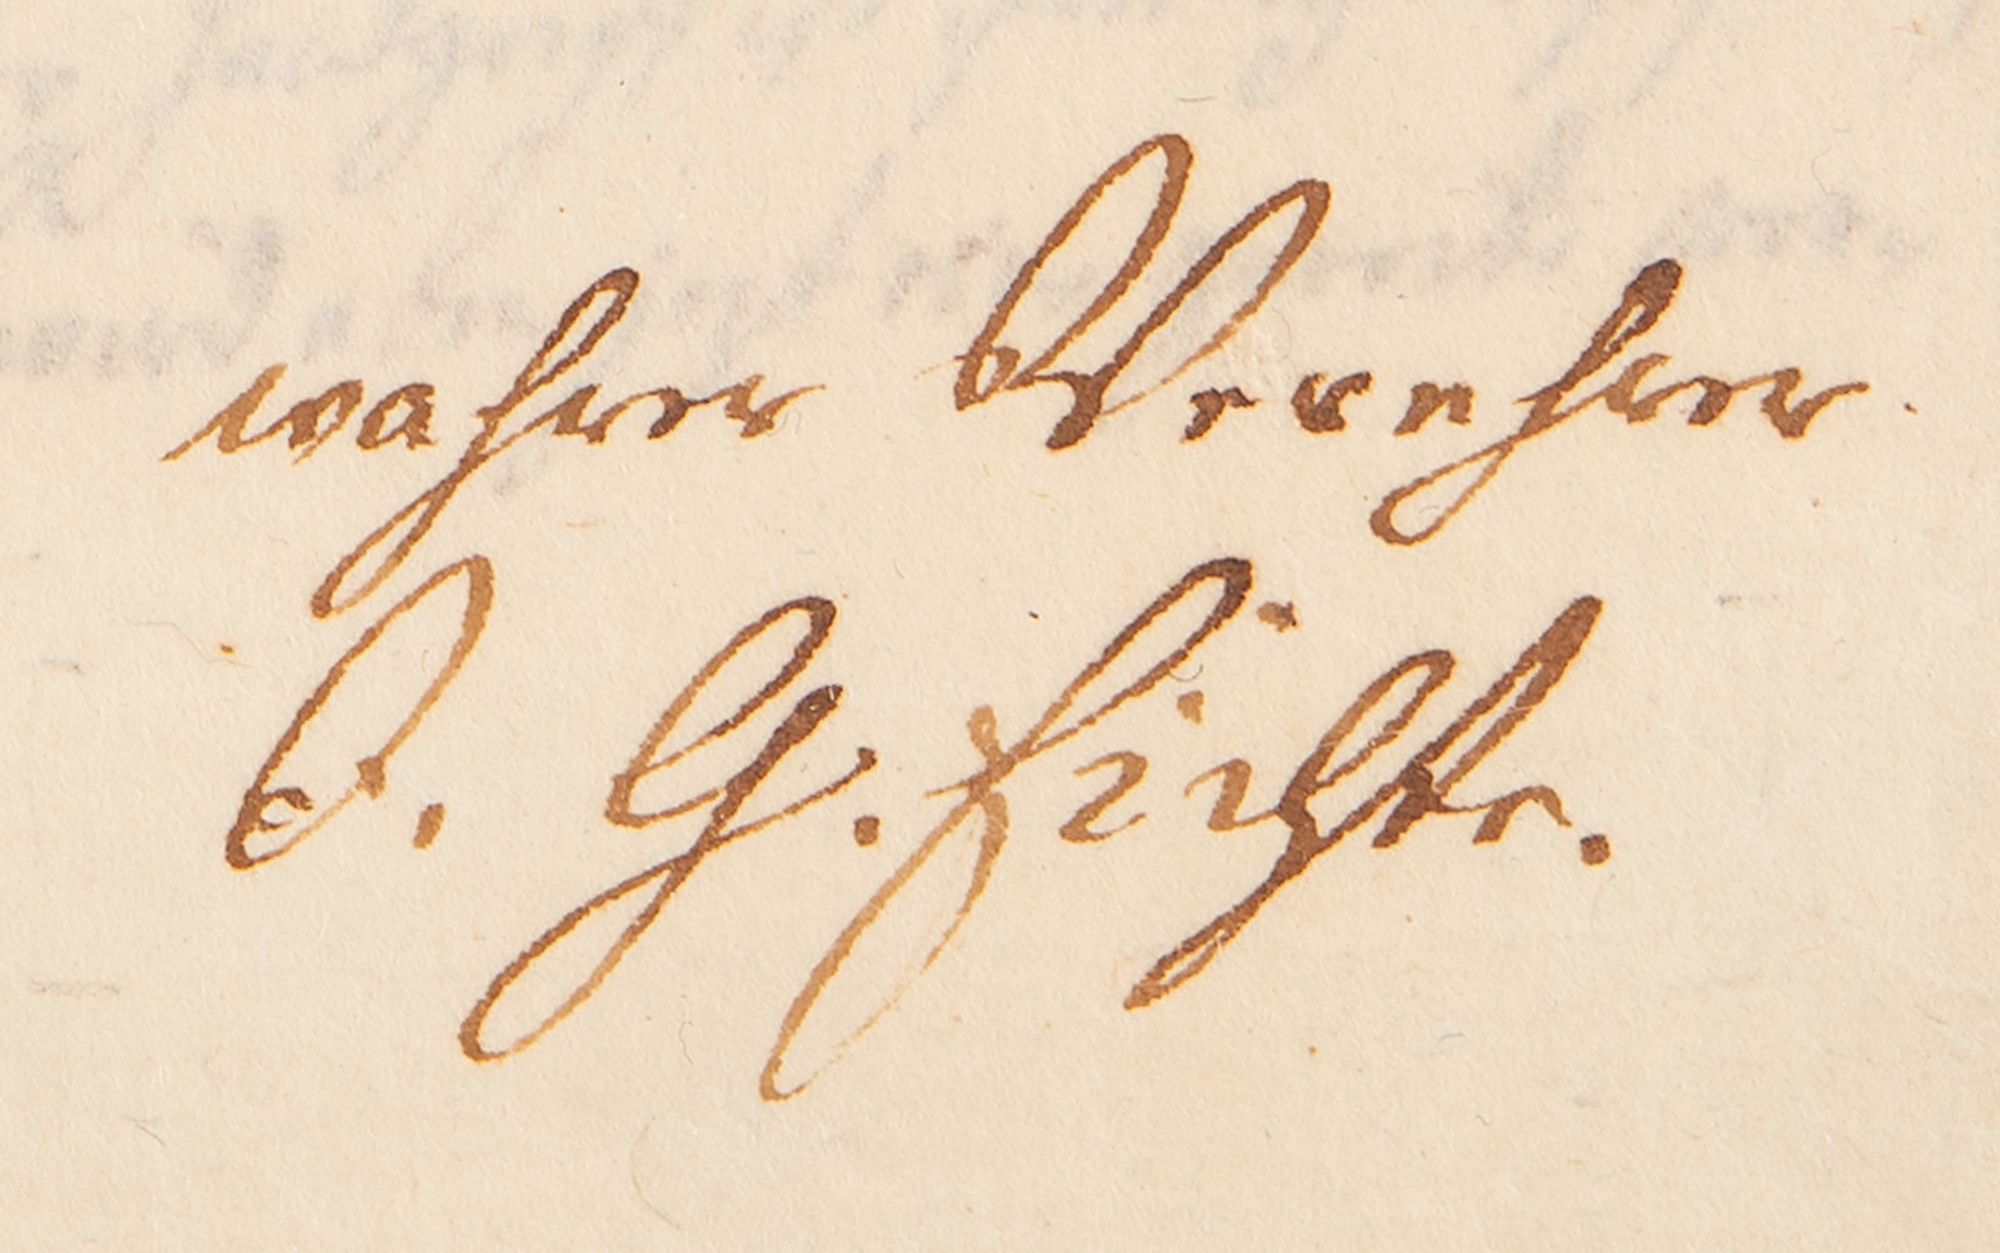 wahrer Verehrer.
J. G. Fichte.